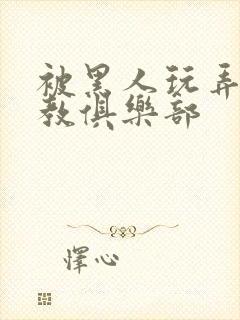 被黑人玩弄
教俱樂部
怿心